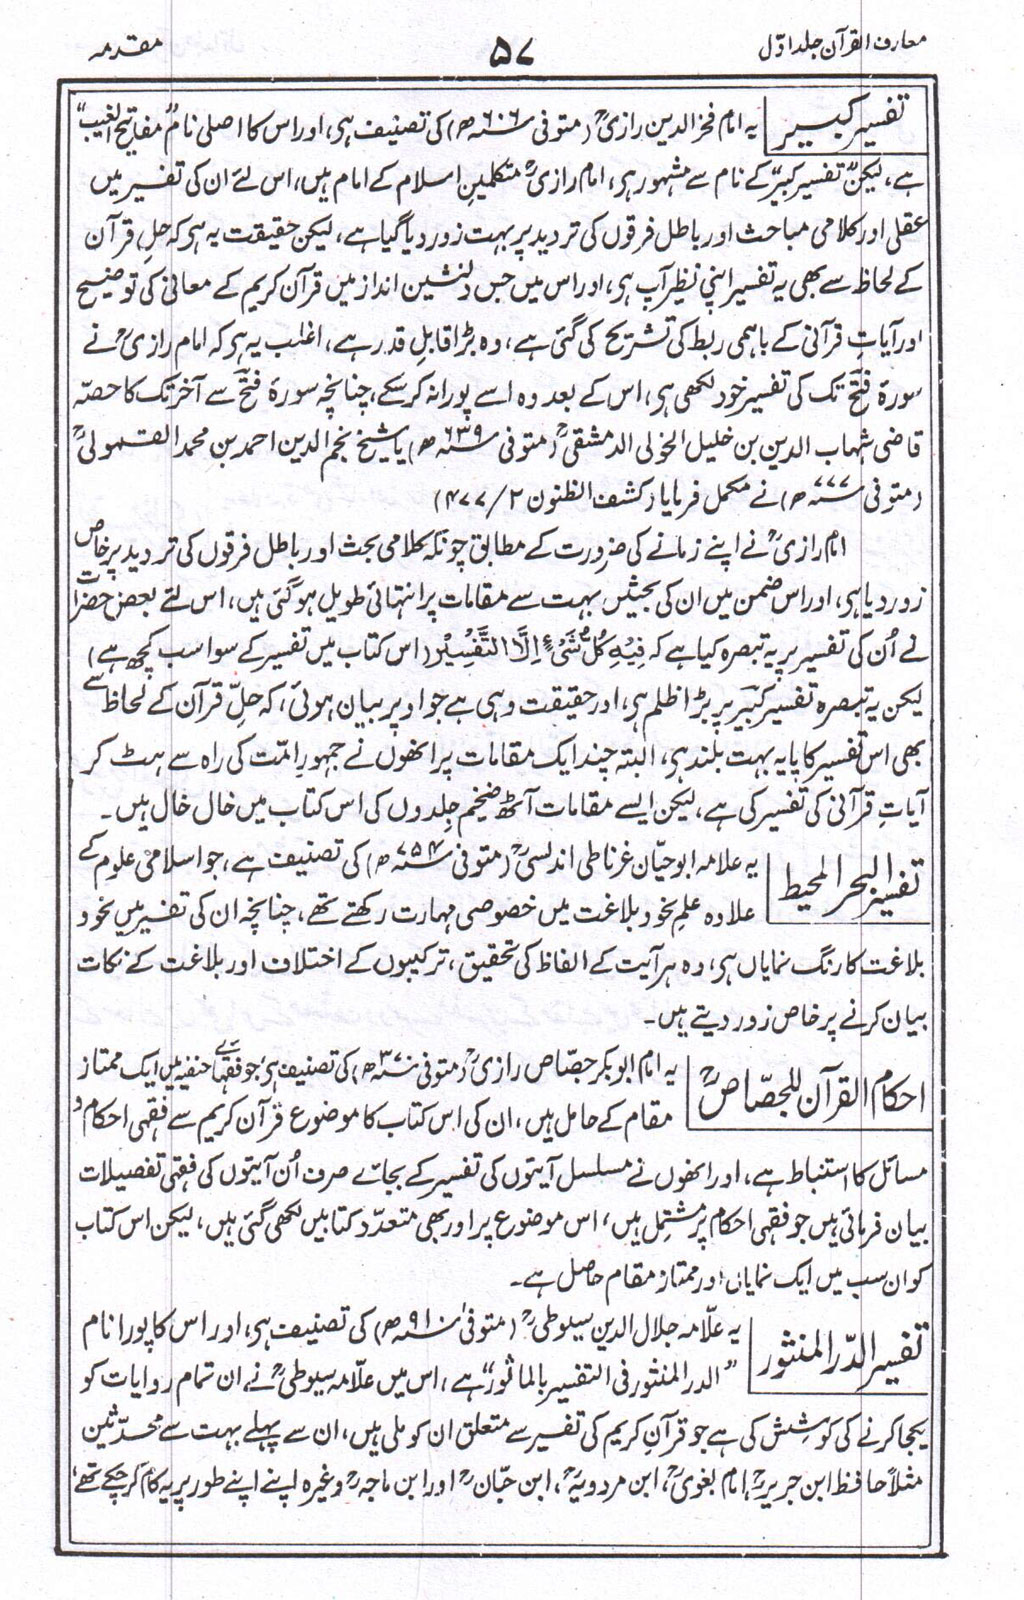 معارف القرآن جلد اوّل ۵۷ مقدمہ
تفسیر کبیر یہ امام فخر الدین رازیؒ (متوفی ۶۰۶ھ) کی تصنیف ہی، اور اس کا اصلی نام "مفاتیح الغیب"
ہے، لیکن "تفسیر کبیر" کے نام سے مشہور ہی، امام رازیؒ متکلمینِ اسلام کے امام ہیں، اس لئے ان کی تفسیر میں
عقلی اور کلامی مباحث اور باطل فرقوں کی تردید پر بہت زور دیا گیا ہے، لیکن حقیقت یہ ہی کہ حلِ قرآن
کے لحاظ سے بھی یہ تفسیر اپنی نظیر آپ ہی، اور اس میں جس دلنشین انداز میں قرآن کریم کے معانی کی توضیح
اور آیاتِ قرآنی کے باہمی ربط کی تشریح کی گئی ہے، وہ بڑا قابلِ قدر ہے، اغلب یہ ہی کہ امام رازیؒ نے
سورۂ فتح تک کی تفسیر خود لکھی ہی، اس کے بعد وہ اسے پورا نہ کر سکے، چنانچہ سورۂ فتح سے آخر تک کا حصّہ
قاضی شہاب الدین بن خلیل الخولی الدمشقیؒ (متوفی ۶۳۹ھ) یا شیخ نجم الدین احمد بن محمد القمولیؒ
(متوفی ۷۷۷ھ) نے مکمل فرمایا (کشف الظنون ۲/ ۴۷۷)
امام رازیؒ نے اپنے زمانے کی ضرورت کے مطابق چونکہ کلامی بحث اور باطل فرقوں کی تردید پر خاص
زور دیا ہی، اور اس ضمن میں ان کی بحثیں بہت سے مقامات پر انتہائی طویل ہو گئی ہیں، اس لئے بعض حضرات
نے اُن کی تفسیر پر یہ تبصرہ کیا ہے کہ فِیْهِ كُلُّ شَیْءٍ اِلَّا التَّفْسِیْرَ (اس کتاب میں تفسیر کے سوا سب کچھ ہے)
لیکن یہ تبصرہ تفسیر کبیر پر بڑا ظلم ہی، اور حقیقت وہی ہے جو اوپر بیان ہوئی، کہ حلِّ قرآن کے لحاظ سے
بھی اس تفسیر کا پایہ بہت بلند ہی، البتہ چند ایک مقامات پر انھوں نے جمہورِ امّت کی راہ سے ہٹ کر
آیاتِ قرآنی کی تفسیر کی ہے، لیکن ایسے مقامات آٹھ ضخیم جِلدوں کی اس کتاب میں خال خال ہیں۔
تفسیر البحر المحیط یہ علامہ ابو حیّان غرناطی اندلسیؒ (متوفی ۷۵۴ھ) کی تصنیف ہے، جو اسلامی علوم کے
علاوہ علمِ نحو و بلاغت میں خصوصی مہارت رکھتے تھے، چنانچہ ان کی تفسیر میں نحو و
بلاغت کا رنگ نمایاں ہی، وہ ہر آیت کے الفاظ کی تحقیق، ترکیبوں کے اختلاف اور بلاغت کے نکات
بیان کرنے پر خاص زور دیتے ہیں۔
احکام القرآن للجصّاصؒ یہ امام ابو بکر جصّاص رازیؒ (متوفی ۳۷۰ھ) کی تصنیف ہی، جو فقہائے حنفیہ میں ایک ممتاز
مقام کے حامل ہیں، ان کی اس کتاب کا موضوع قرآن کریم سے فقہی احکام و
مسائل کا استنباط ہے، اور انھوں نے مسلسل آیتوں کی تفسیر کے بجائے صرف اُن آیتوں کی فقہی تفصیلات
بیان فرمائی ہیں جو فقہی احکام پر مشتمل ہیں، اس موضوع پر اور بھی متعدّد کتابیں لکھی گئی ہیں، لیکن اس کتاب
کو ان سب میں ایک نمایاں اور ممتاز مقام حاصل ہے۔
تفسیر الدّر المنثور یہ علّامہ جلال الدین سیوطیؒ (متوفیٰ ۹۱۰ھ) کی تصنیف ہی، اور اس کا پورا نام
"الدر المنثور فی التفسیر بالماثور" ہے، اس میں علّامہ سیوطیؒ نے ان تمام روایات کو
یکجا کرنے کی کوشش کی ہے جو قرآن کریم کی تفسیر سے متعلق ان کو ملی ہیں، ان سے پہلے بہت سے محدّثین
مثلاً حافظ ابن جریرؒ، امام بغویؒ، ابن مردویہؒ، ابن حبّانؒ اور ابن ماجہؒ وغیرہ اپنے اپنے طور پر یہ کام کر چکے تھے،